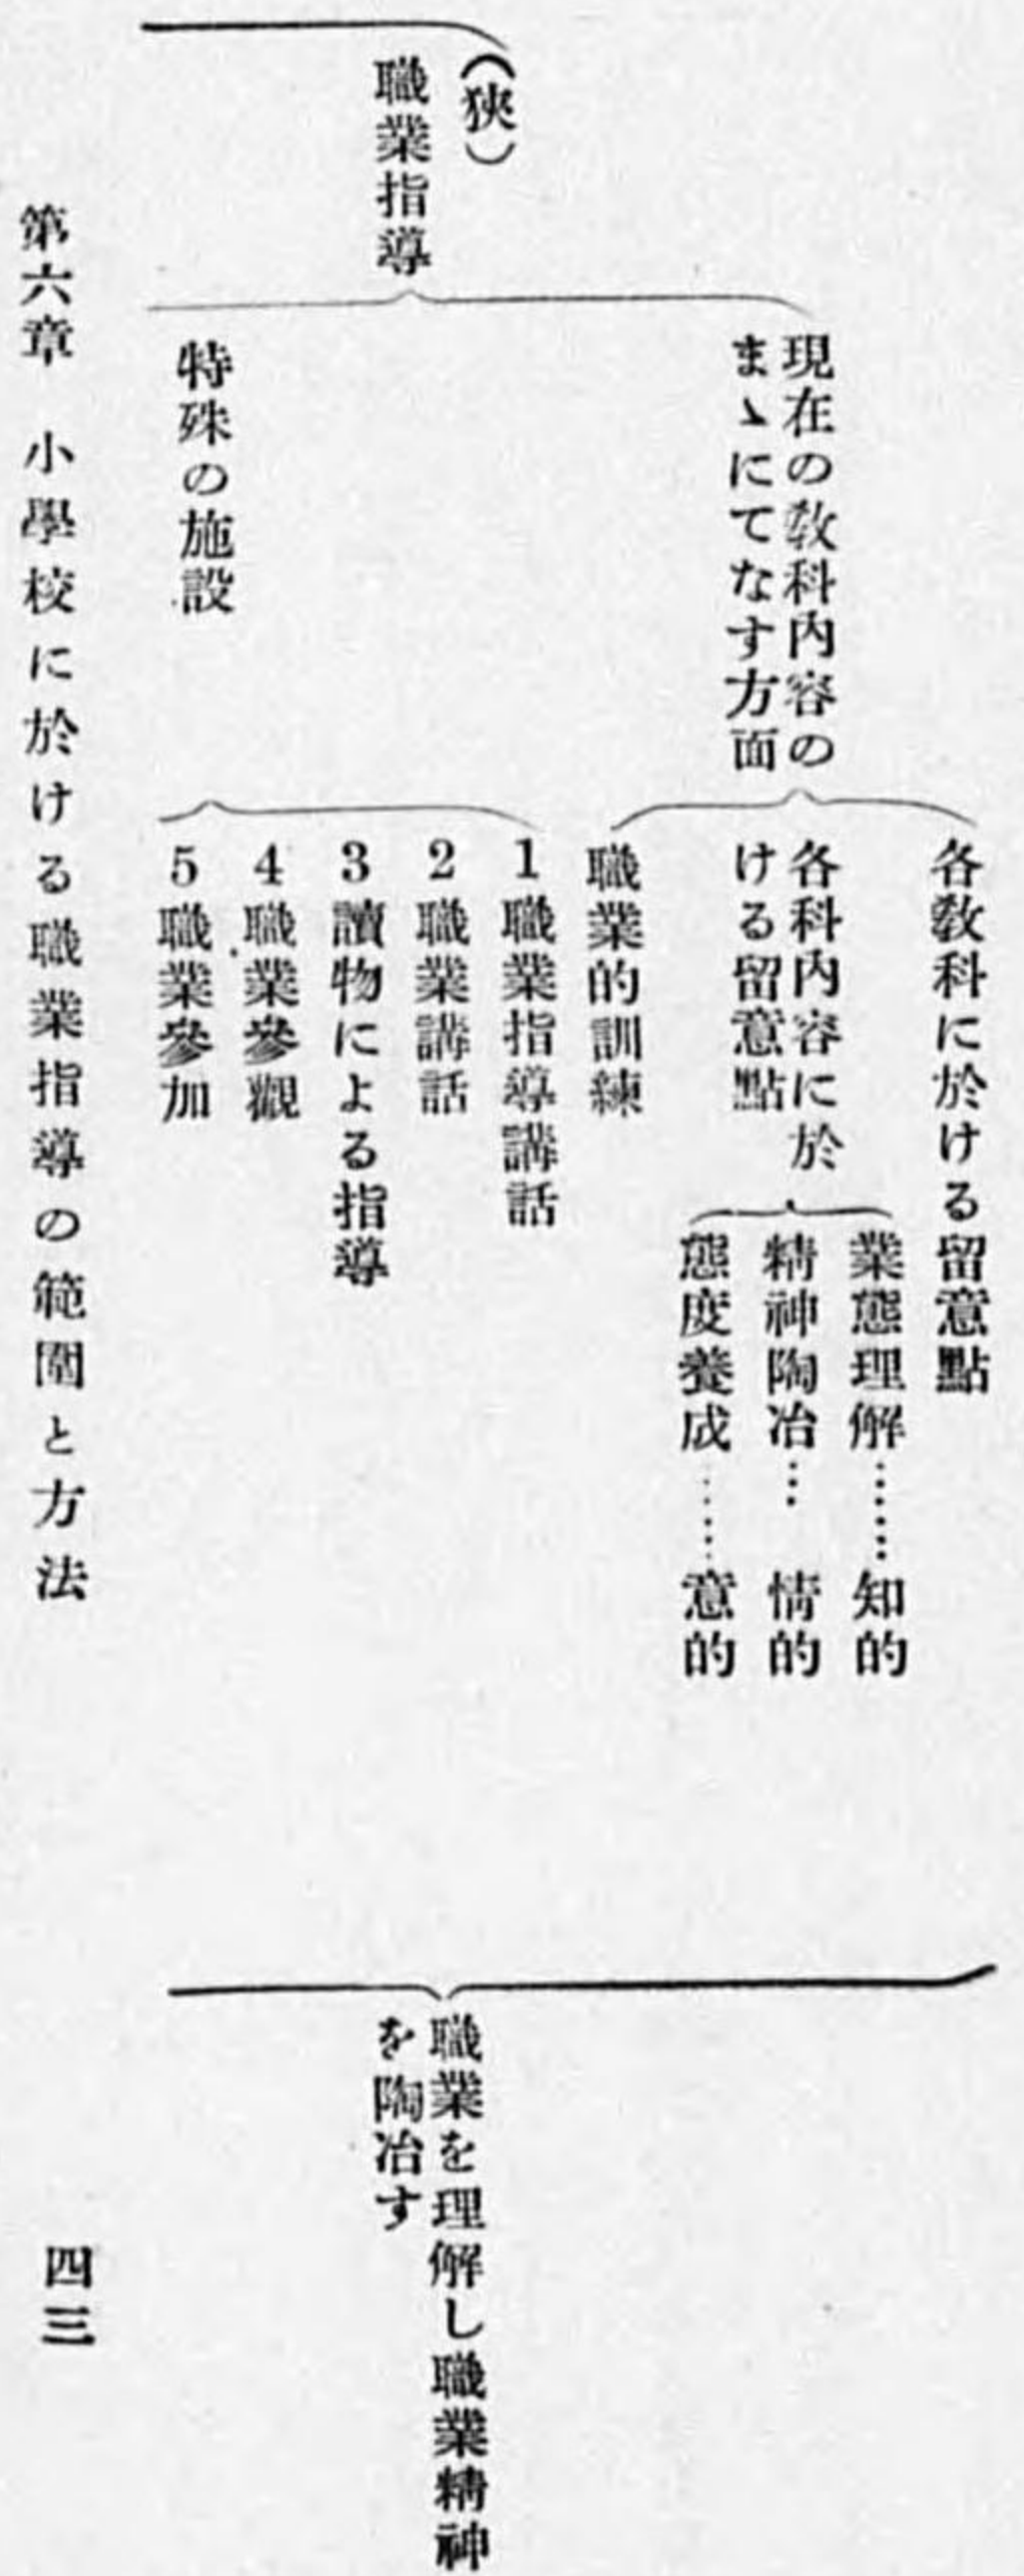 (狹)
職業指導
現在の敎科內容の
まゝにてなす方面
各敎科に於ける留意點
各科內容に於
ける留意點
業態理解……知的
精神陶冶…情的
態度養成……意的
職業的訓練
特殊の施設
1職業指導講話
2職業講話
3讀物による指導
4職業參觀
5職業參加
職業を理解し職業精神
を陶冶す
第六章 小學校に於ける職業指導の範圍と方法
四三